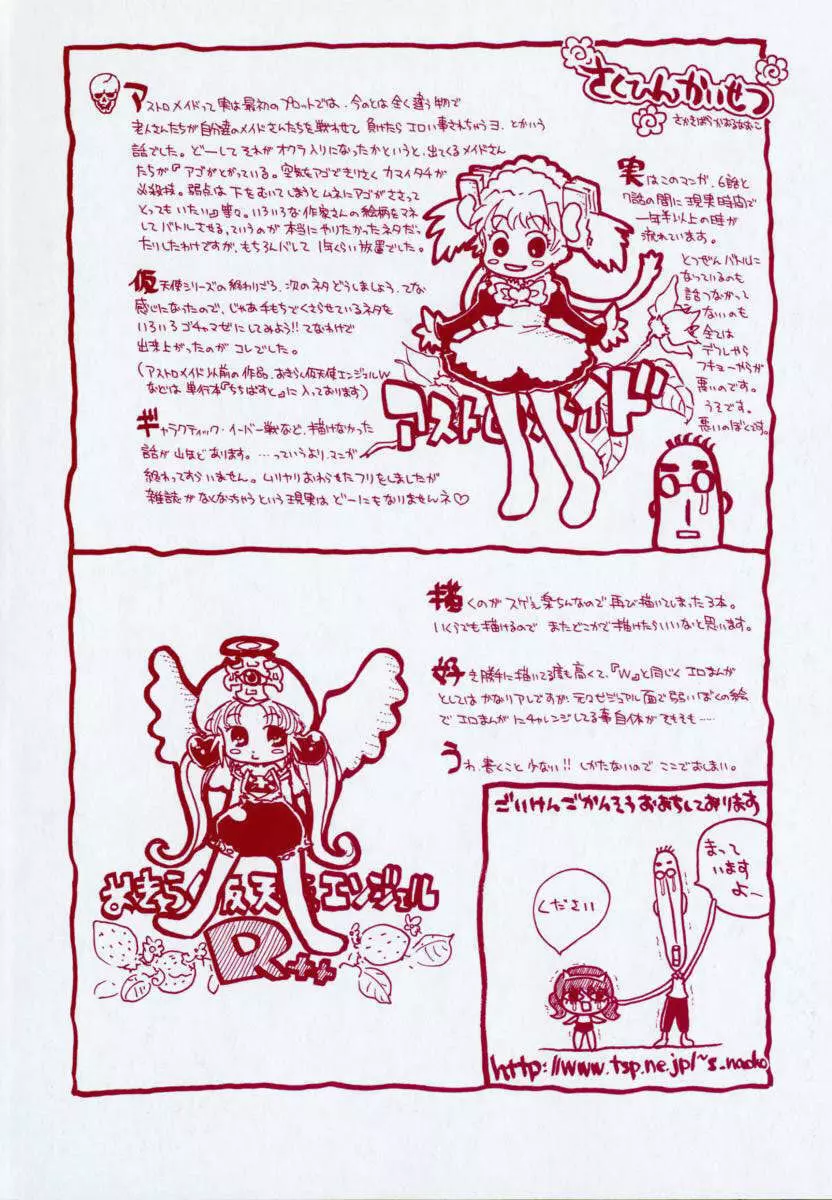 さくひんかいせつ
さかきばらかおるなおこ
アストロメイドって実は最初のプロットでは、今のとは全く違う物で
老人さんたちが自分達のメイドさんたちを戦わせて 負けたらエロい事されちゃうヨ、とかいう
話でした。どーしてそれがオクラ入りになったかというと、出てくるメイドさん
たちが『アゴがとがっている。空気をアゴできりさくカマイタチが
必殺技。弱点は下をむいてしまうとムネにアゴがささって
とってもいたい』等々。いろいろな作家さんの絵柄をマネ
してバトルさせる、っていうのが本当にやりたかったネタだっ
たりしたわけですが、もちろんバレして1年くらい放置でした。
仮天使シリーズの終わりごろ、次のネタどうしましょう、てな
感じになったので、じゃあ手もちでくさらせているネタを
いろいろゴチャマゼにしてみよう!!てなわけで
出来上がったのがコレでした。
(アストロメイド以前の作品、おきらく仮天使エンジェルW
などは単行本『ちちばすと』に入っております)
ギャラクティック・イーバー戦など、描けなかった
話が山ほどあります。…っていうより、マンガ
終わってすらいません。ムリヤリおわらせたフリをしましたが
雑誌がなくなっちゃうという現実はどーにもなりませんネ♡
実はこのマンガ、6話と
7話の間に現実時間で
一年半以上の時が
流れています。
とつぜんバトルに
なっているのも
話つながって
ないのも
全ては
デフレやら
フキョーやらが
悪いのです。
うそです。
悪いのぼくです。
アストロメイド
描くのがスゲぇ楽ちんなので再び描いてしまった3本。
いくらでも描けるのでまたどこかで描けたらいいなと思います。
好き勝手に描いてる度も高くて、『W』と同じくエロまんが
としてはかなりアレですが、元々ビジュアル面で弱いぼくの絵
でエロまんがにチャレンジしてる事自体がそもそも……
うわ、書くこと少ない!!しかたないのでここでおしまい。
おきらく仮天使エンジェル
R++
ごいけんごかんそうおまちしております
まって
いますよ〜
ください
http://www.tsp.ne.jp/~s_naoko